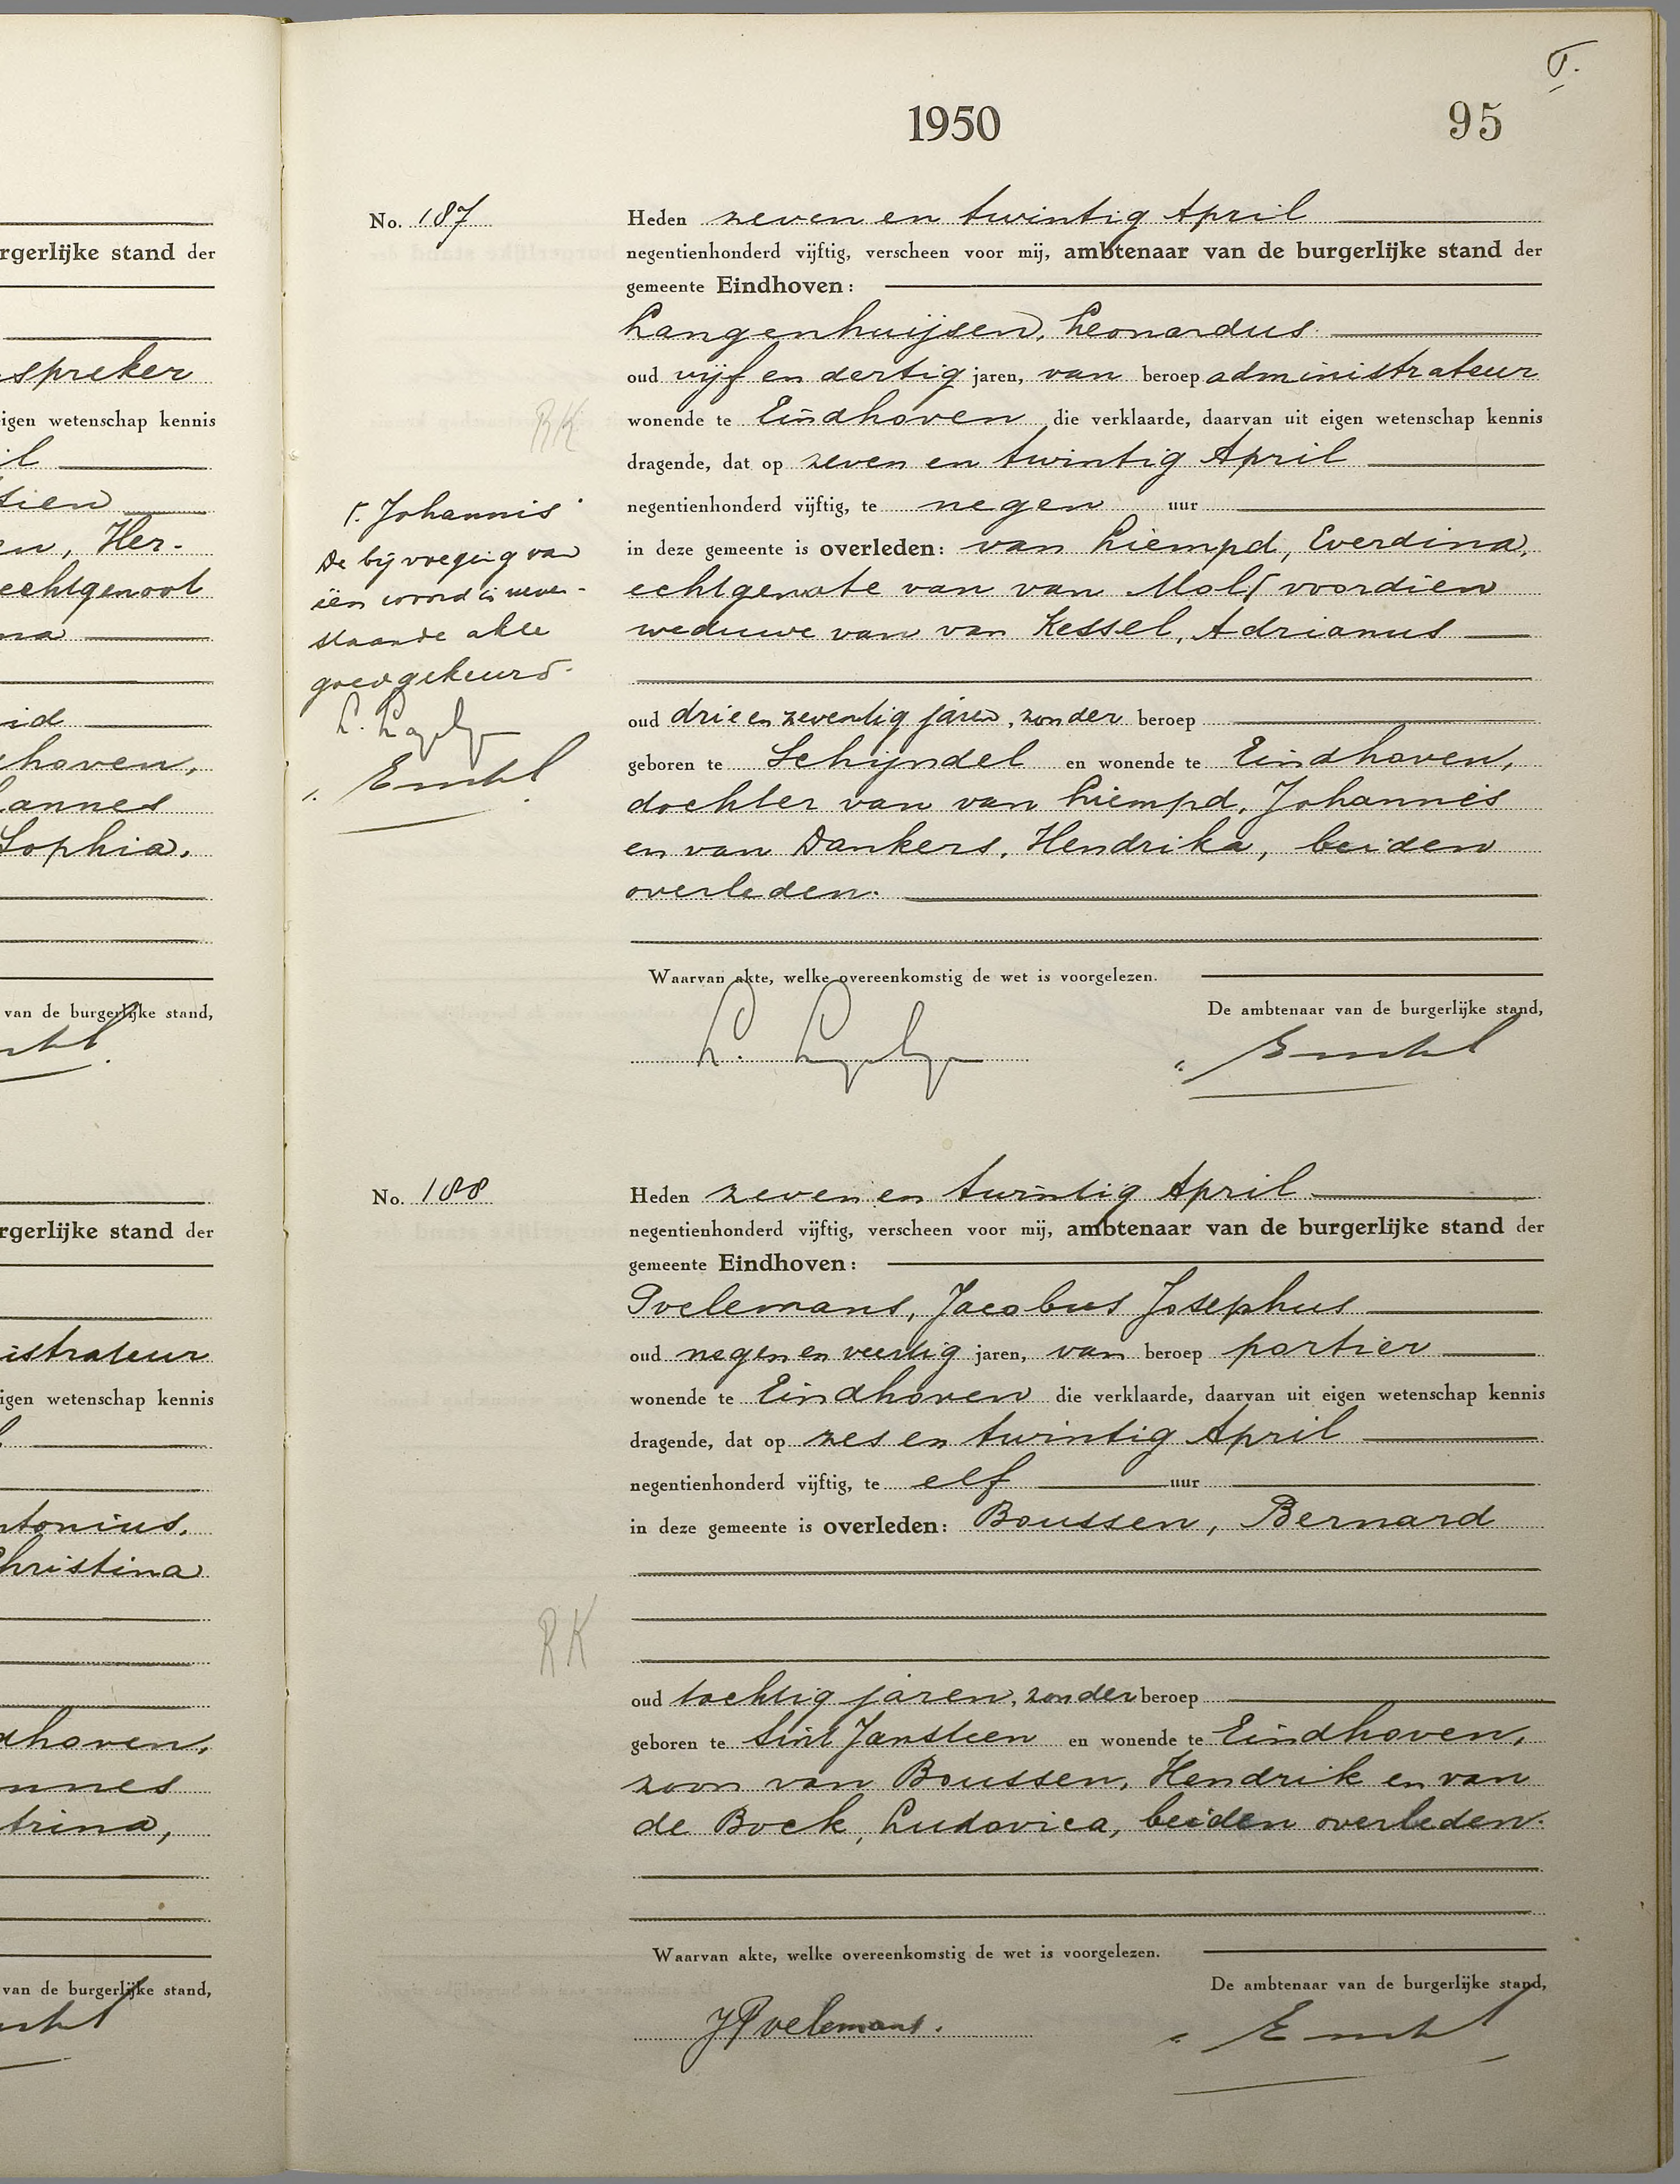 rgerlijke stand der
spreker
igen wetenschap kennis
il
tien
en, Her-
echtgenoot
na
id
hoven,
annes
Sophia,
van de burgerlijke stand,
rgerlijke stand der
istrateur
igen wetenschap kennis
l
ntonius,
Christina
dhoven,
nnes
trina,
van de burgerlijke stand,
1950
95
No. 187
Heden zeven en twintig April
negentienhonderd vijftig, verscheen voor mij, ambtenaar van de burgerlijke stand der
gemeente Eindhoven:
Langenhuijsen, Leonardus
oud vijf en dertig jaren, van beroep administrateur
wonende te Eindhoven die verklaarde, daarvan uit eigen wetenschap kennis
dragende, dat op zeven en twintig April
negentienhonderd vijftig, te negen uur
in deze gemeente is overleden: van Liempd, Everdina,
echtgenote van van Mol, ſ voordien
weduwe van van Kessel, Adrianus
oud drie en zeventig jaren, zonder beroep
geboren te Schijndel en wonende te Eindhoven,
dochter van van Liempd, Johannes
en van Dankers, Hendrika, beiden
overleden.
Waarvan akte, welke overeenkomstig de wet is voorgelezen.
De ambtenaar van de burgerlijke stand,
RK
ſ. Johannis
De bijvoeging van
één woord in neven-
staande akte
goedgekeurd.
No. 188
Heden zeven en twintig April
negentienhonderd vijftig, verscheen voor mij, ambtenaar van de burgerlijke stand der
gemeente Eindhoven:
Poelemans, Jacobus Josephus
oud negen en veertig jaren, van beroep portier
wonende te Eindhoven die verklaarde, daarvan uit eigen wetenschap kennis
dragende, dat op zes en twintig April
negentienhonderd vijftig, te elf uur
in deze gemeente is overleden: Boussen, Bernard
RK
oud tachtig jaren, zonder beroep
geboren te Sint Jansteen en wonende te Eindhoven,
zoon van Boussen, Hendrik en van
de Bock, Ludovica, beiden overleden.
Waarvan akte, welke overeenkomstig de wet is voorgelezen.
De ambtenaar van de burgerlijke stand,
JPoelemans.